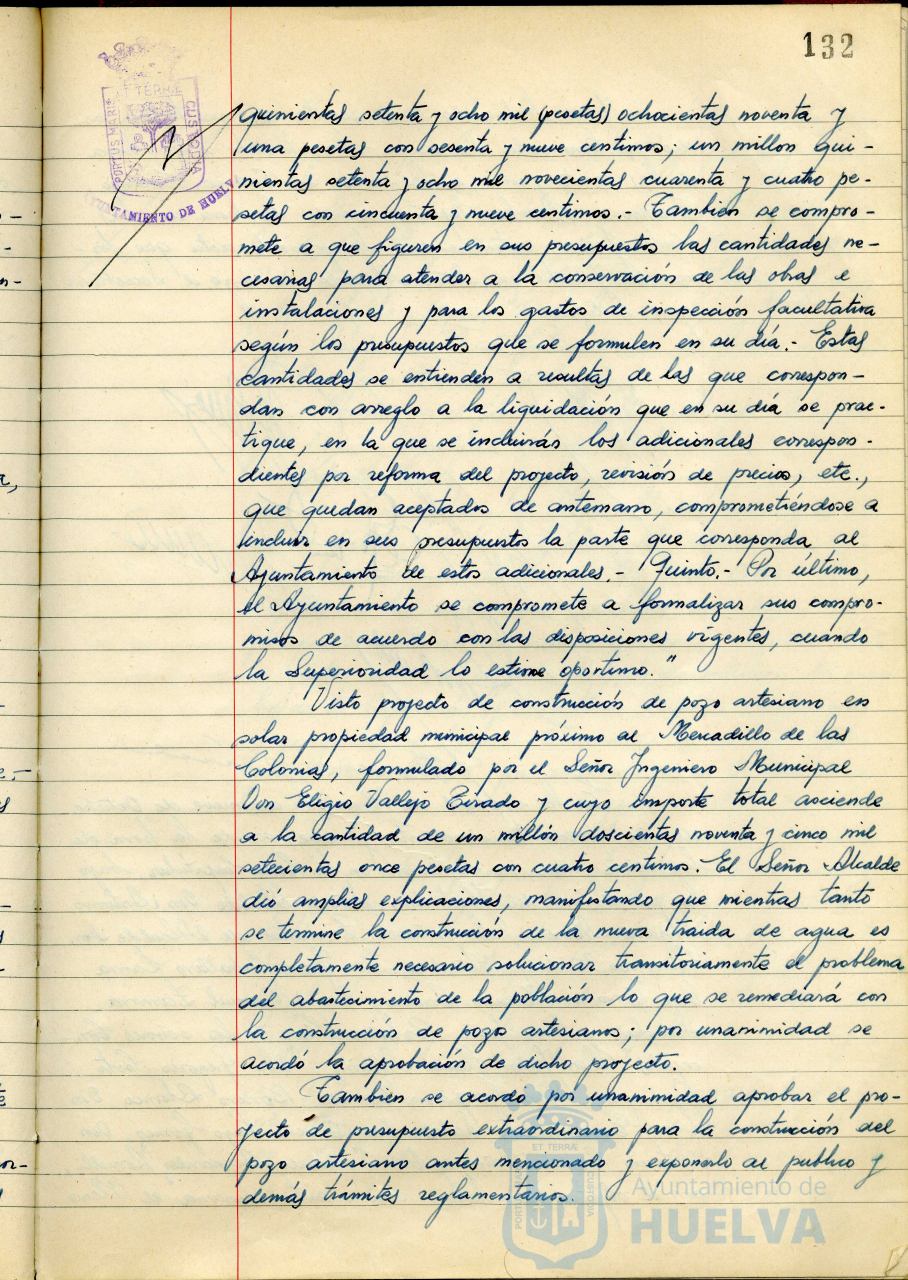 132
PORTUS MARIS
ET TERRE
CUSTODIA
AYUNTAMIENTO DE HUELVA
quinientas setenta y ocho mil (pesetas) ochocientas noventa y
una pesetas con sesenta y nueve centimos; un millon qui-
nientas setenta y ocho mil novecientas cuarenta y cuatro pe-
setas con cincuenta y nueve centimos.- Tambien se compro-
mete a que figuren en sus presupuestos las cantidades ne-
cesarias para atender a la conservación de las obras e
instalaciones y para los gastos de inspección facultativa
según los presupuestos que se formulen en su día.- Estas
cantidades se entienden a resultas de las que correspon-
dan con arreglo a la liquidación que en su día se prac-
tique, en la que se incluirán los adicionales correspon-
dientes por reforma del projecto, revisión de precios, etc.,
que quedan aceptados de antemano, comprometiéndose a
incluir en sus presupuestos la parte que corresponda al
Ayuntamiento de estos adicionales.- Quinto.- Por último,
el Ayuntamiento se compromete a formalizar sus compro-
misos de acuerdo con las disposiciones vigentes, cuando
la Superioridad lo estime oportuno."
Visto projecto de construcción de pozo artesiano en
solar propiedad municipal próximo al Mercadillo de las
Colonias, formulado por el Señor Ingeniero Municipal
Don Eligio Vallejo Tirado y cuyo importe total asciende
a la cantidad de un millón doscientas noventa y cinco mil
setecientas once pesetas con cuatro centimos. El Señor Alcalde
dió amplias explicaciones, manifestando que mientras tanto
se termine la construcción de la nueva traida de agua es
completamente necesario solucionar transitoriamente el problema
del abastecimiento de la población lo que se remediará con
la construcción de pozos artesianos; por unanimidad se
acordó la aprobación de dicho projecto.
Tambien se acordo por unanimidad aprobar el pro-
jecto de presupuesto extraordinario para la construcción del
pozo artesiano antes mencionado y exponerlo al publico y
demás trámites reglamentarios.
Ayuntamiento de
HUELVA